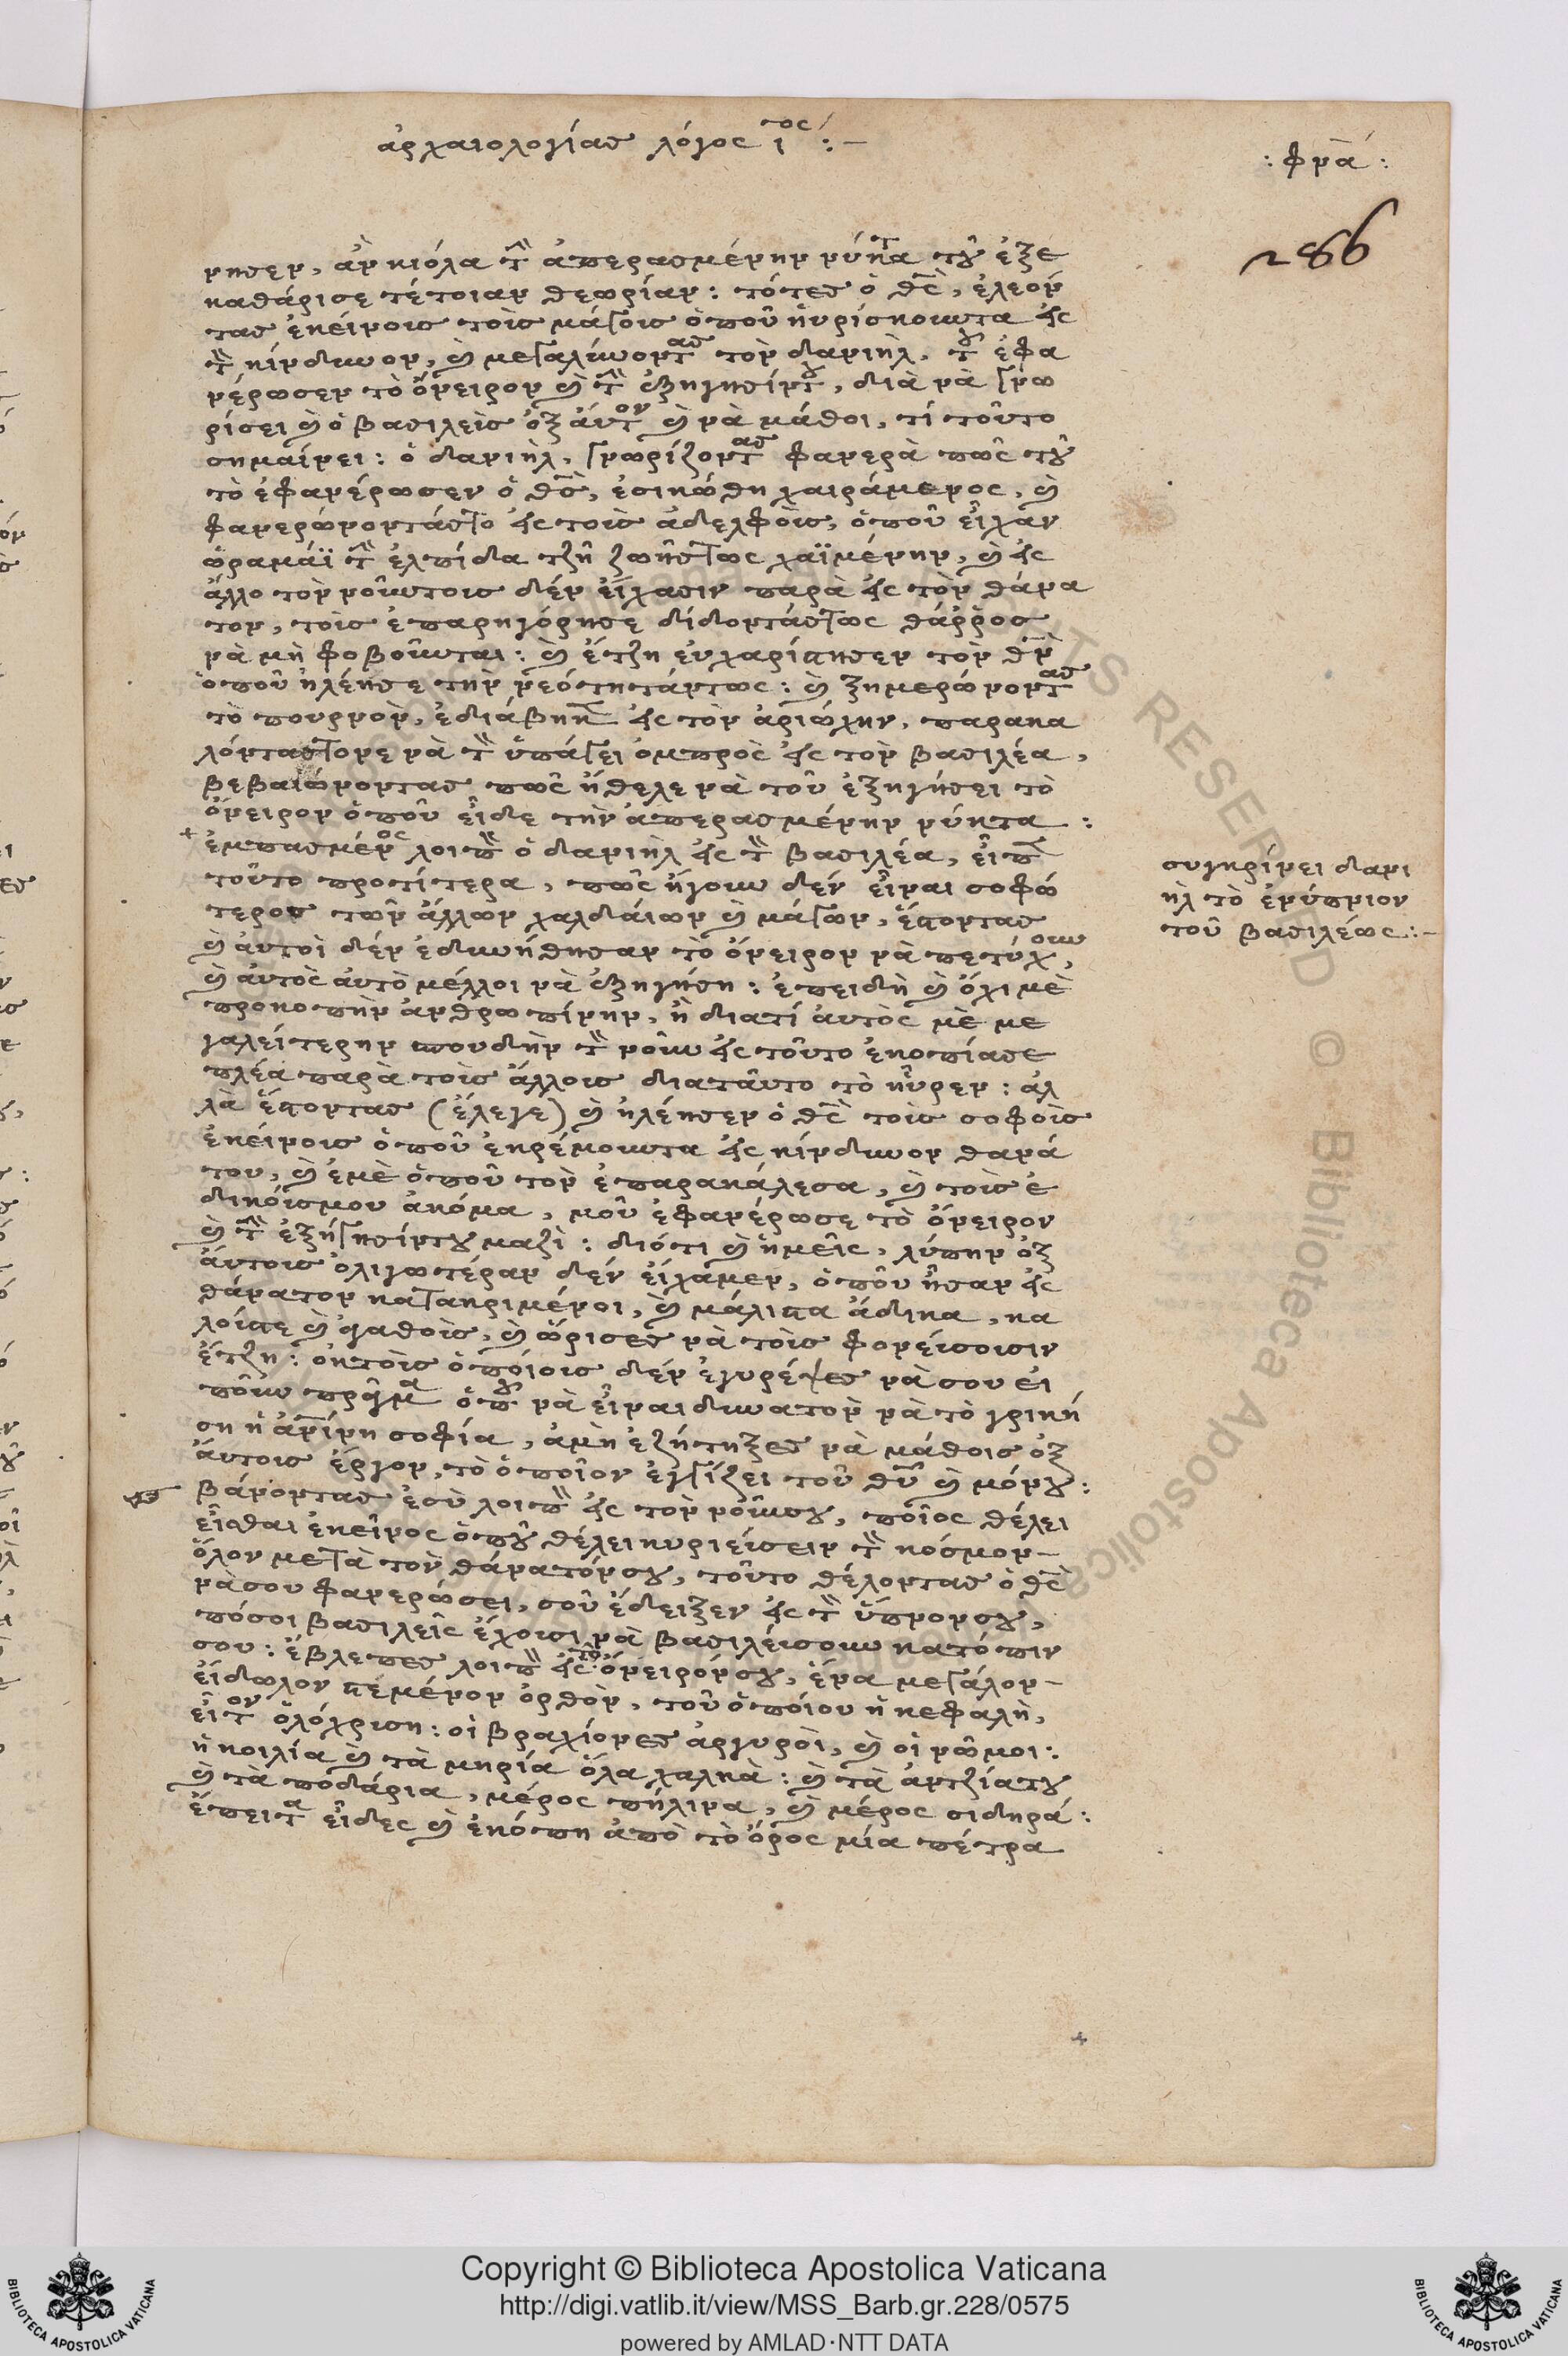 ἀρχαιολογίας λόγος ι τος :—
: φνα :
286
νησεν, ἂν κιόλα τὴν ἀπερασμένην νύκτα τοῦ ἐξε
καθάρισε τέτοιαν θεωρίαν : τότες ὁ θεὸς, ἐλεόν
τας ἐκείνους τοὺς μάγους ὁποῦ ηὑρίσκουντα εἰς
τὸν κίνδυνον, καὶ μεγαλύνοντας τὸν δανιὴλ, τοῦ ἐφα
νέρωσεν τὸ ὄνειρον καὶ τὴν ἐξηγησίν του, διὰ νὰ γνω
ρίσει καὶ ὁ βασιλεὺς ὀξ αὐτον καὶ νὰ μάθοι, τί τοῦτο
σημαίνει : ὁ δανιὴλ, γνωρίζοντας φανερὰ πῶς τοῦ
τὸ ἐφανέρωσεν ὁ θεὸς, ἐσικώθη χαιράμενος, καὶ
φανερώνοντάςτο εἰς τοὺς ἀδελφοὺς, ὁποῦ εἶχαν
ὡραμάϊ τὴν ἐλπίδα τζῆ ζωῆςτως χαϊμένην, καὶ εἰς
ἄλλο τὸν νοῦντους δέν εἴχασιν παρὰ εἰς τὸν θάνα
τον, τοὺς ἐπαρηγόρησε δίδοντάςτως θάῤῥος
νὰ μὴ φοβοῦνται : καὶ ἔτζη εὐχαρίστησεν τὸν θεὸν
ὁποῦ ἠλέησε τὴν νεότητάντως : καὶ ξημερώνοντας
τὸ πουρνὸν, ἐδιάβηκε εἰς τὸν ἀριώχην, παρακα
λόνταςτονε νὰ τὸν ὑπάγει ὀμπρὸς εἰς τὸν βασιλέα,
βεβαιώνοντας πῶς ἤθελε νὰ τοῦ ἐξηγήσει τὸ
ὄνειρον ὁποῦ εἶδε τὴν ἀπερασμένην νύκτα :
ἐμπασμένος λοιπὸν ὁ δανιὴλ εἰς τὸν βασιλέα, εἶπε
τοῦτο προτίτερα, πῶς ἤγουν δέν εἶναι σοφώ
τερος τῶν ἄλλων χαλδάιων καὶ μάγων, ἔστοντας
καὶ αὐτοὶ δέν ἐδυνήθησαν τὸ ὄνειρον νὰ πετύχουν,
καὶ αὐτὸς αὐτὸ μέλλοι νὰ ἐξηγήση : ἐπειδὴ καὶ ὄχι μὲ
προκοπὴν ἀνθρωπίνην, ἢ διατί αὐτὸς μὲ με
γαλείτερην σπουδὴν τὸν νοῦν εἰς τοῦτο ἐκοπίασε
πλέα παρὰ τοὺς ἄλλους διαταῦτο τὸ ηὗρεν : ἀλ
λὰ ἔστοντας (ἔλεγε) καὶ ἠλέησεν ὁ θεὸς τοὺς σοφοὺς
ἐκείνους ὁποῦ ἐκρέμουντα εἰς κίνδυνον θανά
του, καὶ ἐμὲ ὁποῦ τὸν ἐπαρακάλεσα, καὶ τοὺς ἐ
δικόυσμου ἀκόμα, μοῦ ἐφανέρωσε τὸ ὄνειρον
καὶ τὴν ἐξήγησίντου μαζὶ : διότι καὶ ἡμεῖς, λύπην ὀξ
αὐτους ὀλιγωτέραν δέν εἴχαμεν, ὁποῦ ἦσαν εἰς
θάνατον κατακριμένοι, καὶ μάλιστα ἄδικα, κα
λοίστε καὶ ἀγαθοὺς, καὶ ὥρισες νὰ τοὺς φονεύσουσιν
ἔτζη : ὀκτοὺς ὁποίους δέν ἐγυρέψες νὰ σου εἰ
ποῦν πράγμα ὁποῦ νὰ εἶναι δυνατὸν νὰ τὸ γρική
ση ἡ ἀνθρωπίνη σοφία, ἀμὴ ἐζήτηξες νὰ μάθοις ὀξ
αὐτους ἔργον, τὸ ὁποῖον ἐγγίζει τοῦ θεοῦ καὶ μόνου :
βάνοντας ἐσὺ λοιπὸν εἰς τὸν νοῦνσου, ποῖος θέλει
εἶσθαι ἐκεῖνος ὁποῦ θέλει κυριεύσειν τὸν κόσμον—
ὅλον μετὰ τὸν θάνατόνσου, τοῦτο θέλοντας ὁ θεὸς
νὰ σου φανερώσει, σοῦ ἔδειξεν εἰς τὸν ὕπνονσου,
πόσοι βασιλεῖς ἔχουσι νὰ βασιλεύσουν κατόπιν
σου : ἔβλεπες λοιπὸν εἰς τὸ ὄνειρόνσου, ἕνα μεγάλον—
εἴδωλον στεμένον ὀρθὸν, τοῦ ὁποίου ἡ κεφαλὴ,
εἶτον ὁλόχρυση : οἱ βραχίονες ἀργυροὶ, καὶ οἱ νῶμοι :
ἡ κοιλία καὶ τὰ μηρία ὅλα χαλκὰ : καὶ τὰ ἀντζίατου
καὶ τὰ ποδάρια, μέρος πήλινα, καὶ μέρος σιδηρά :
ἔπειτα εἶδες καὶ ἐκόπη ἀπὸ τὸ ὄρος μία πέτρα
συγκρίνει δανι
ὴλ τὸ ἐνύπνιον
τοῦ βασιλέως :—
Copyright © Biblioteca Apostolica Vaticana
http://digi.vatlib.it/view/MSS_Barb.gr.228/0575
powered by AMLAD·NTT DATA
BIBLIOTECA APOSTOLICA VATICANA
BIBLIOTECA APOSTOLICA VATICANA